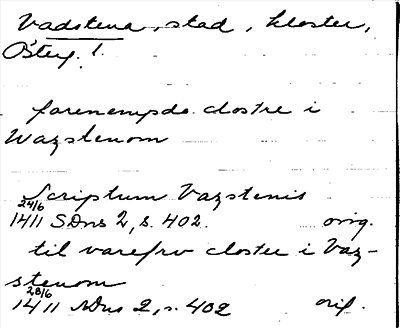 Vadstena, stad, kloster,
Östg. l.
forenempdo clostre i
Wazstenom
Scriptum Vazstenis
24/6
1411 SDns 2, s. 402. orig.
til varefrv closter i Vaz-
stenom
28/6
1411 SDns 2, s. 402 orig.